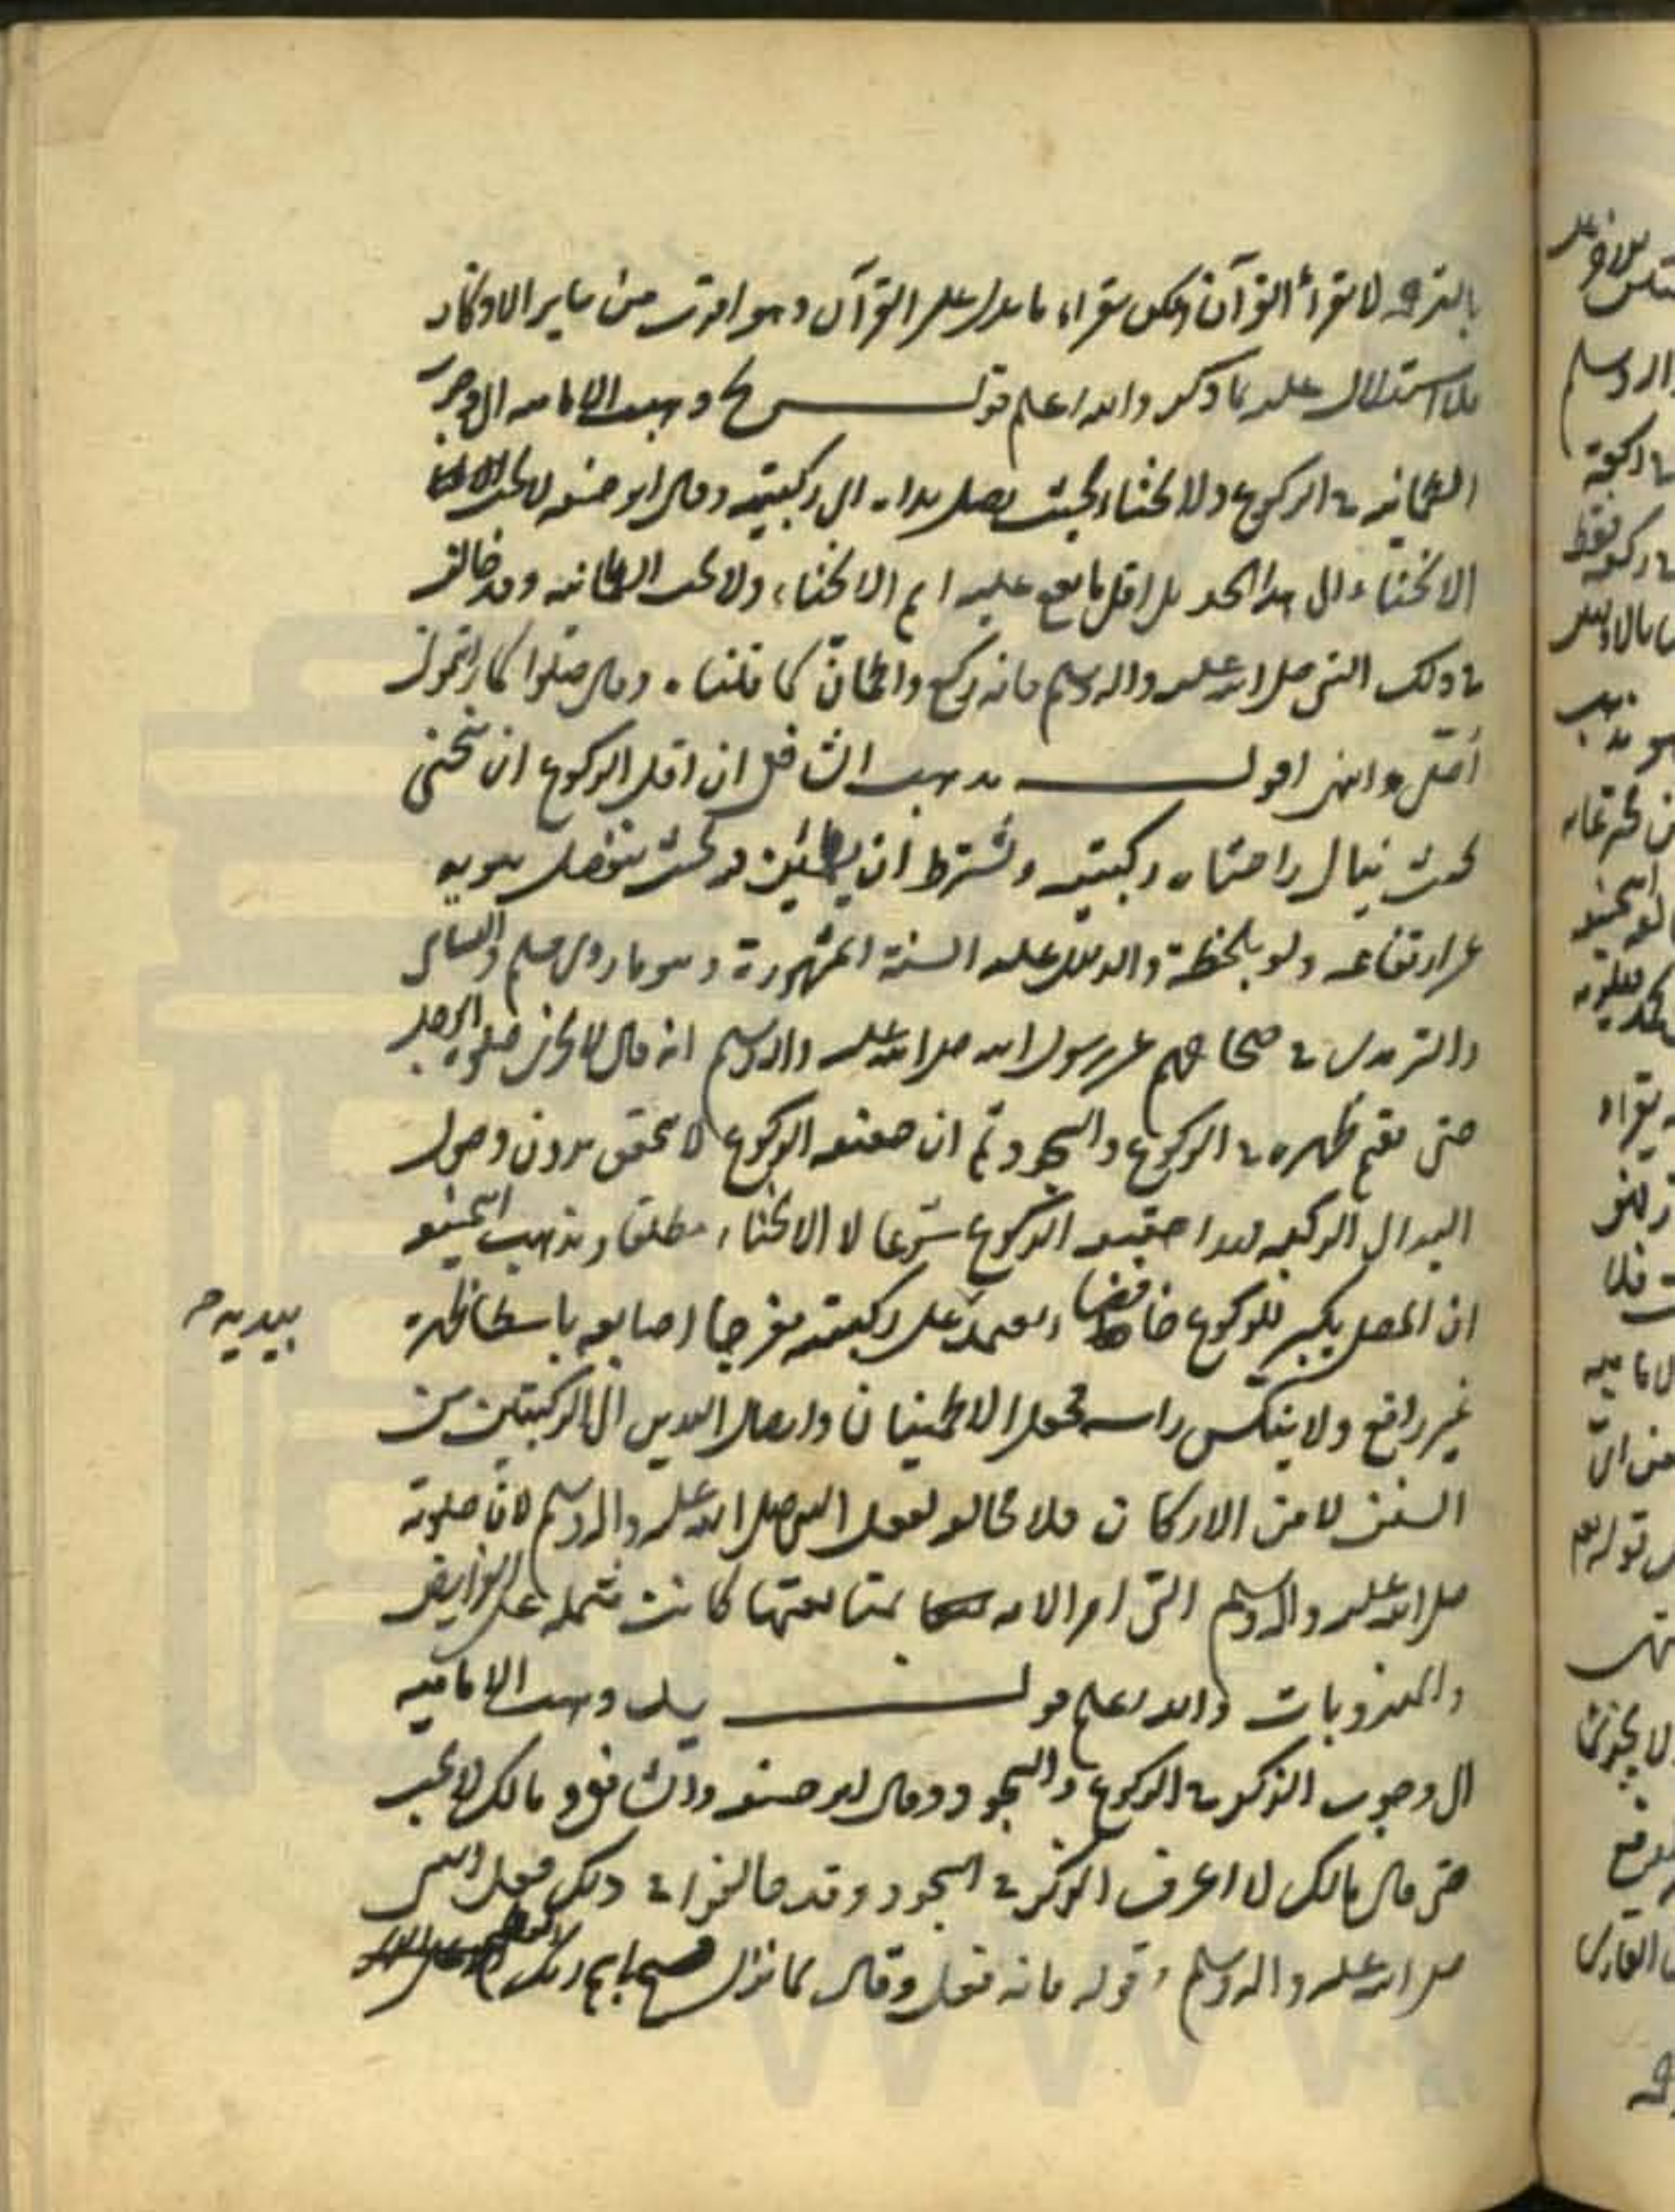 لا تقراء القرآن ولكن تقراء ما يدل على القرآن وهو اقرب من ساير الاذكار
عليه بما ذكر والله اعلم قولـــه يح ذهبت الامامية الى وجوب
الطمانينة في الركوع والانحناء بحيث يصل يداه الى ركبتيه وقال ابو حنيفه لا يجب
الانحناء الى هذا الحد بل اقل ما يقع عليه اسم الانحناء ولا يجب الطمانينه وقد خالف
في ذلك النبي صلى الله عليه واله وسلم فانه ركع واطمان كما قلناه وقال صلوا كما رايتموني
اصلي وانتهى اقول مذهب الشافعي ان اقل الركوع ان ينحني
بحيث ينال راحتاه ركبتيه ويشترط ان يطمئن فيه بحيث ينفصل هويه
عن ارتفاعه ولو بلحظة والدليل عليه السنة المشهورة وهو ما روى مسلم والنسائي
والترمذي في صحاحهم عن رسول الله صلى الله عليه واله وسلم انه قال لا تجزي صلوة الرجل
حتى يقيم ظهره في الركوع والسجود ثم ان حقيقة الركوع لا يتحقق بدون وصول
اليد الى الركبه حقيقة الركوع شرعا لا الانحناء مطلقا ومذهب الحنيفة
ان المصلي يكبر للركوع خافضا ويعتمد على ركبتيه مفرجا اصابعه باسطا ظهره
بيديه
غير رافع ولا ينكس راسه فجعل الاطمينان وايصال اليدين الى الركبتين من
السنن لا من الاركان فلا مخالفه لفعل النبي صلى الله عليه واله وسلم لان صلوته
صلى الله عليه واله وسلم التي امر الامه بمتابعتها كانت مشتمله على الفرايض
والمندوبات والله اعلم قولـــه يط ذهبت الامامية
الى وجوب الذكر في الركوع والسجود وقال ابو حنيفه والشافعي ومالك لا يجب
حتى قال مالك لا اعرف الذكر في السجود وقد خالفوا في ذلك فعل النبي
صلى الله عليه واله وسلم وقوله فانه فعل وقال لما نزل فسبح باسم ربك العظيم